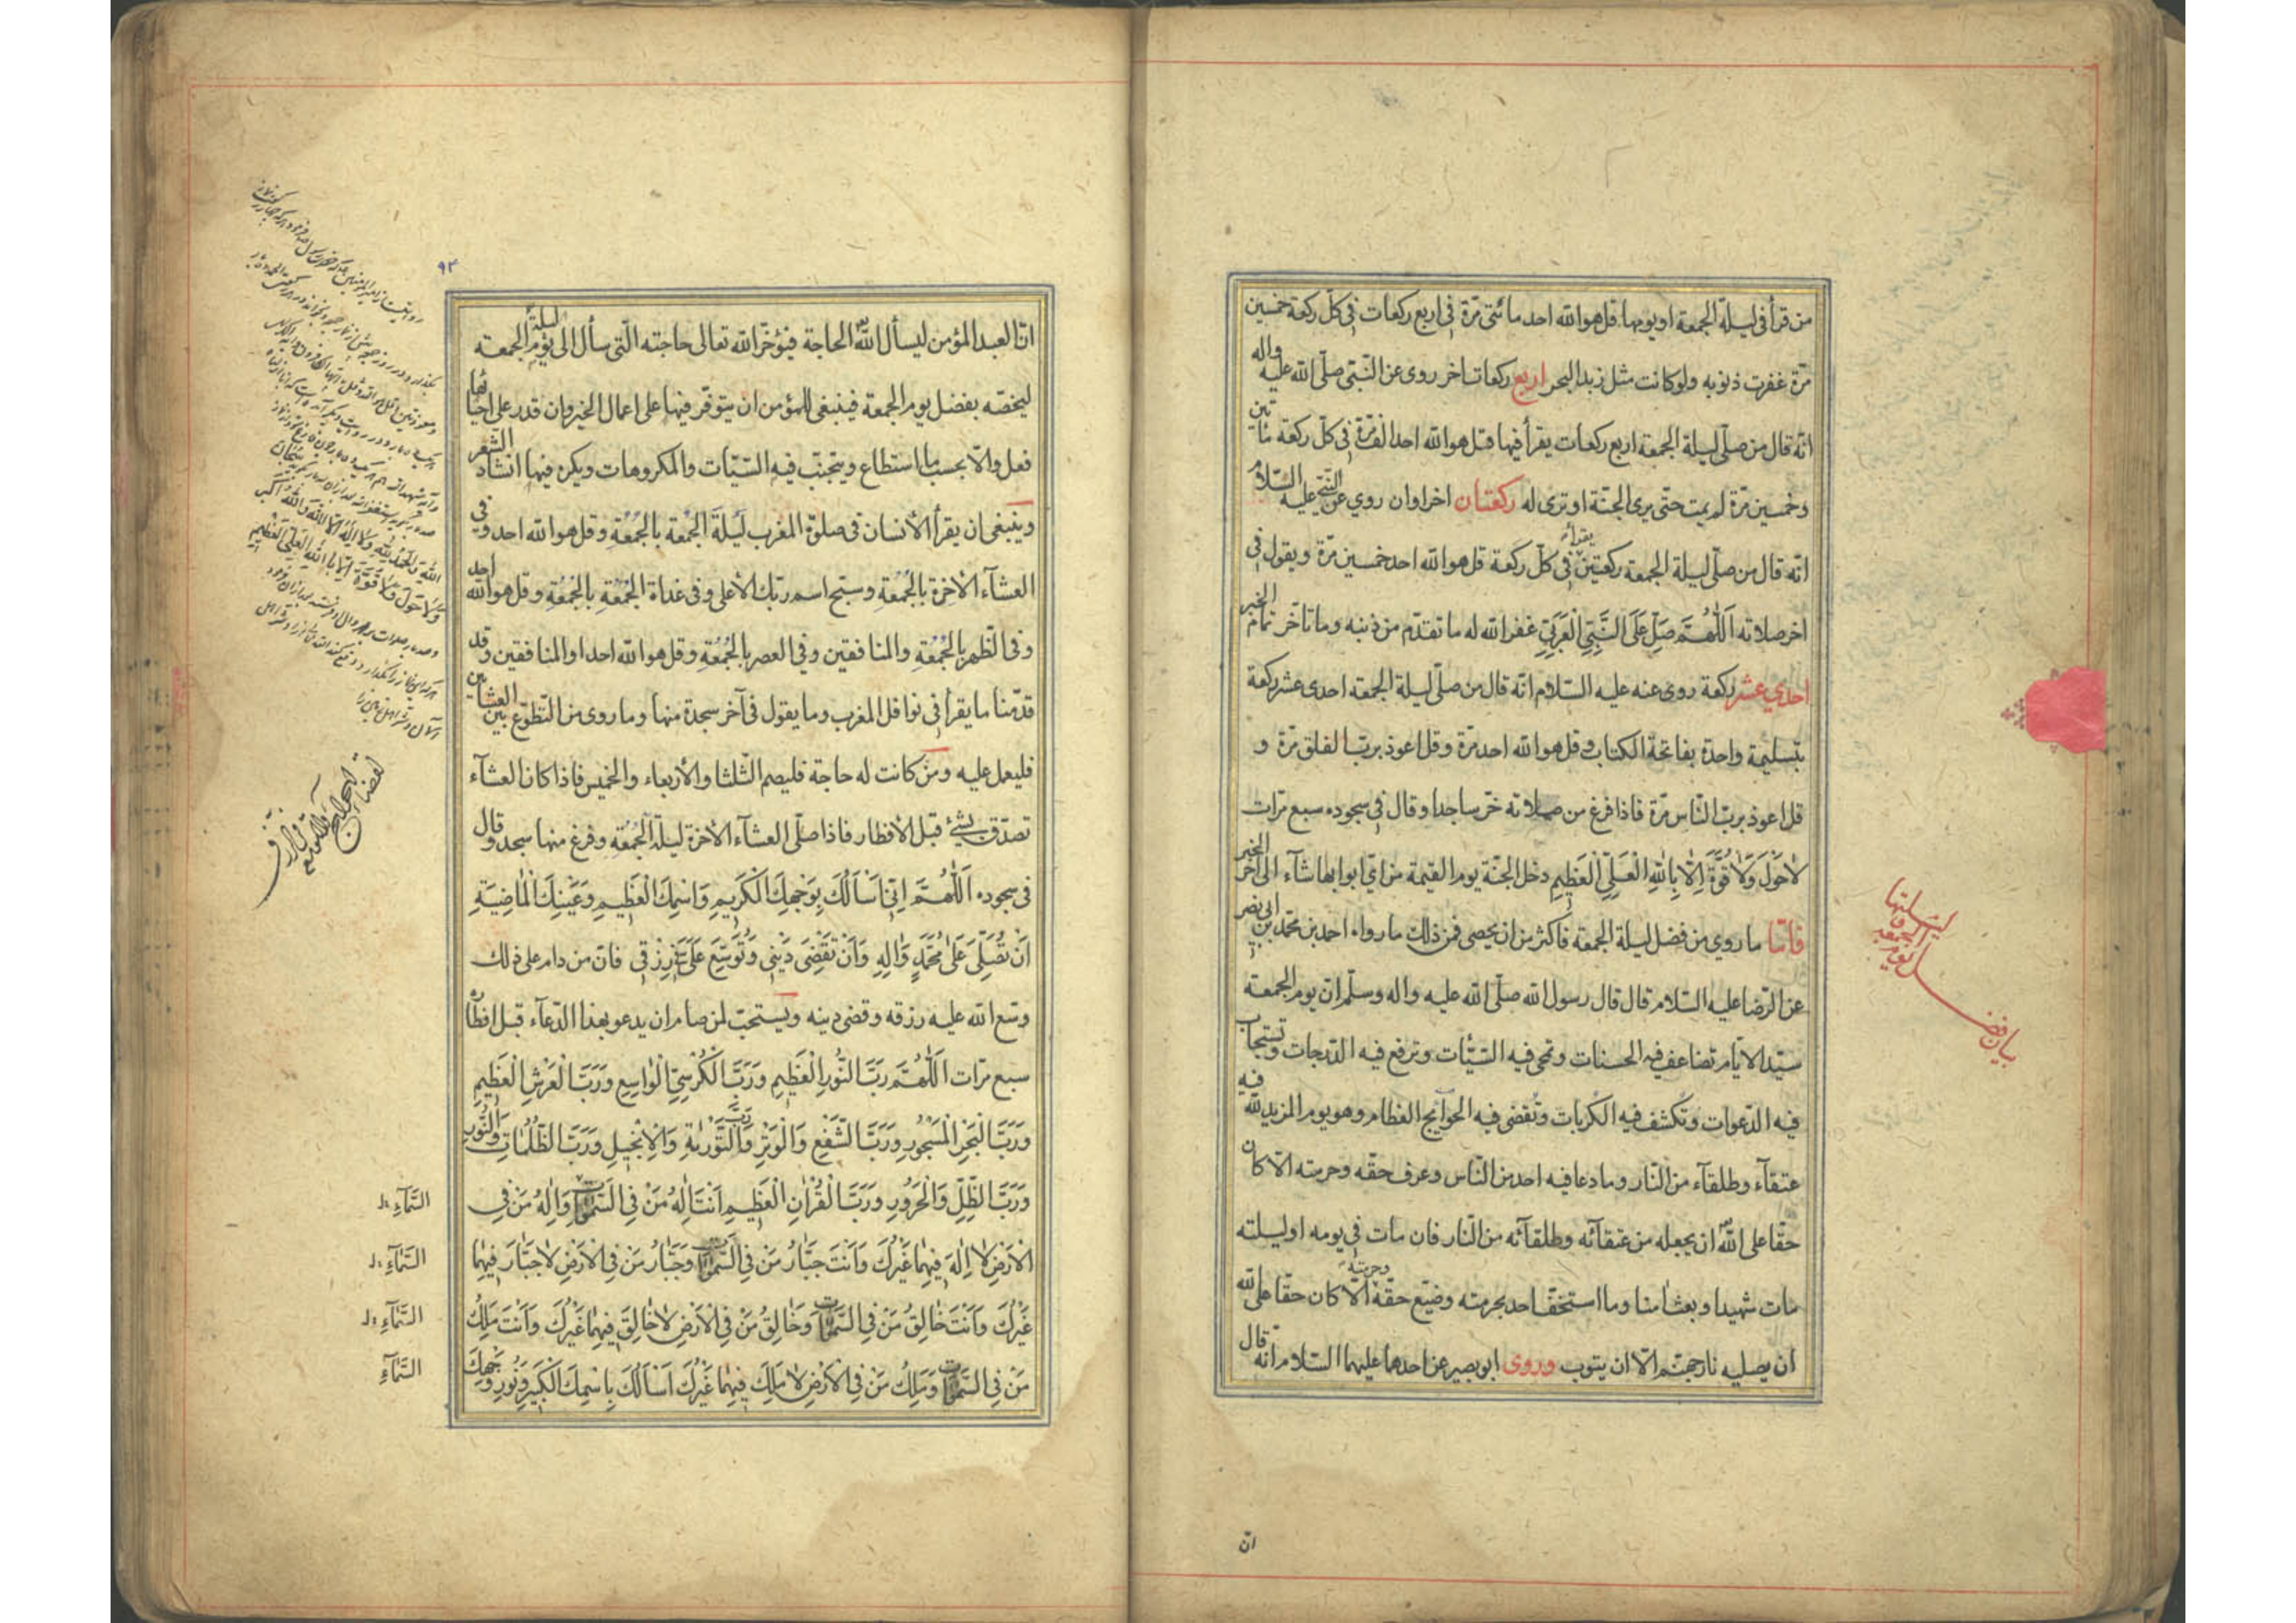 من قرأ في ليلة الجمعة او يومها قل هو الله احد مائتي مرّة في اربع ركعات في كلّ ركعة خمسين
مرّة غفرت ذنوبه ولو كانت مثل زبد البحر اربع ركعات اخر روى عن النّبيّ صلّى الله عليه واله
انّه قال من صلّى ليلة الجمعة اربع ركعات يقرأ فيها قل هو الله احد الف مرّة في كلّ ركعة مأتين
وخمسين مرّة لم يمت حتّى يرى الجنّة او ترى له ركعتان اخراوان روي عن النّبيّ عليه السّلام
انّه قال من صلّى ليلة الجمعة ركعتين يقرأ في كلّ ركعة قل هو الله احد خمسين مرّة ويقول في
اخر صلاته اَللّٰهُمَّ صَلِّ عَلَى النَّبِيِّ الْعَرَبِيِّ غفر الله له ما تقدّم من ذنبه وما تأخّر تمام الخبر
احدي عشر ركعة روى عنه عليه السّلام انّه قال من صلّى ليلة الجمعة احدى عشر ركعة
بتسليمة واحدة بفاتحة الكتاب وقل هو الله احد مرّة وقل اعوذ بربّ الفلق مرّة و
قل اعوذ بربّ النّاس مرّة فاذا فرغ من صلاته خرّ ساجدا وقال في سجوده سبع مرّات
لاٰ حَوْلَ وَلاٰ قُوَّةَ اِلاّٰ بِاللّٰهِ الْعَلِيِّ الْعَظِيمِ دخل الجنّة يوم القيمة من ايّ ابوابها شآء الى آخر الخبر
فامّا ما روي من فضل ليلة الجمعة فاكثر من ان يحصى فمن ذلك ما رواه احمد بن محمّد بن ابي نصر
عن الرّضا عليه السّلام قال قال رسول الله صلّى الله عليه واله وسلّم انّ يوم الجمعة
سيّد الايّام تضاعف فيه الحسنات وتمحى فيه السّيّئات وترفع فيه الدّرجات وتستجاب
فيه الدّعوات وتكشف فيه الكربات وتقضى فيه الحوآئج العظام وهو يوم المزيد للّه فيه
عتقآء وطلقآء من النّار وما دعا فيه احد من النّاس وعرف حقّه وحرمته الاّ كان
حقّا على اللّه ان يجعله من عتقآئه وطلقآئه من النّار فان مات في يومه او ليلته
مات شهيدا وبعث امنا وما استخفّ احد بحرمته وضيّع حقّه وحرمته الاّ كان حقّا على الله
ان يصليه نار جهنّم الاّ ان يتوب وروى ابو بصير عن احدهما عليهما السّلام انّه قال
بيان فضل يوم الجمعة وليلتها
انّ
٩٣
انّ العبد المؤمن ليسأل اللّه الحاجة فيؤخّر الله تعالى حاجته الّتي سأل الى ليلة يوم الجمعة
ليخصّه بفضل يوم الجمعة فينبغى للمؤمن ان يتوفّر فيها على اعمال الخير وان قدر على احيائها
فعل والاّ بحسب ما استطاع ويتجنّب فيه السّيّات والمكروهات ويكره فيها انشاد الشّعر
وينبغى ان يقرأ الأنسان في صلوة المغرب لَيْلَةَ الجُمُعة بالجُمُعَةِ وقل هو الله احد وفي
العشآء الاخرة بالجُمُعَةِ وسبّح اسم ربّك الأعلى وفى غداة الجُمُعَةِ بالجُمُعَةِ وقل هو الله احد
وفى الظّهر بالجُمُعَةِ والمنافقين وفي العصر بالجُمُعَةِ وقل هو الله احد او المنافقين وقد
قدّمنا ما يقرأ في نوافل المغرب وما يقول في آخر سجدة منها وما روى من التّطوّع بين العشائين
فليعمل عليه ومن كانت له حاجة فليصم الثّلثا والأربعاء والخميس فاذا كان العشآء
تصدّق بشئ قبل الأفطار فاذا صلّى العشآء الاخرة ليلة الجُمُعَةِ وفرغ منها سجد وقال
في سجوده اَللّٰهُمَّ اِنّي اَسْاَلُكَ بِوَجْهِكَ الْكَرِيمِ وَاسْمِكَ الْعَظِيمِ وَعَيْنِكَ الْمٰاضِيَةِ
اَنْ تُصَلِّيَ عَلىٰ مُحَمَّدٍ وَاٰلِهِ وَاَنْ تَقْضِيَ دَيْنِي وَتُوَسِّعَ عَلَيَّ رِزْقي فانّ من دام على ذلك
وسّع الله عليه رزقه وقضى دينه ويستحبّ لمن صام ان يدعو بهذا الدّعآء قبل افطاره
سبع مرّات اَللّٰهُمَّ رَبَّ النُّورِ الْعَظِيمِ وَرَبَّ الْكُرْسِيِّ الْوٰاسِعِ وَرَبَّ الْعَرْشِ الْعَظِيمِ
وَرَبَّ الْبَحْرِ الْمَسْجُورِ وَرَبَّ الشَّفْعِ وَالْوَتْرِ وَرَبَّ التَّوْرٰيةِ وَالْاِنْجِيلِ وَرَبَّ الظُّلُمٰاتِ وَالنُّورِ
وَرَبَّ الظِّلِّ وَالْحَرُورِ وَرَبَّ الْقُرْاٰنِ الْعَظِيمِ اَنْتَ اِلٰهُ مَنْ فِي السَّمٰوٰاتِ وَاِلٰهُ مَنْ فِي
الْاَرْضِ لاٰ اِلٰهَ فِيهِمٰا غَيْرُكَ وَاَنْتَ جَبّٰارُ مَنْ فِي السَّمٰوٰاتِ وَجَبّٰارُ مَنْ فِي الْاَرْضِ لاٰ جَبّٰارَ فِيهِمٰا
غَيْرُكَ وَاَنْتَ خٰالِقُ مَنْ فِي السَّمٰوٰاتِ وَخٰالِقُ مَنْ فِي الْاَرْضِ لاٰ خٰالِقَ فِيهِمٰا غَيْرُكَ وَاَنْتَ مَلِكُ
مَنْ فِي السَّمٰوٰاتِ وَمَلِكُ مَنْ فِي الْاَرْضِ لاٰ مَلِكَ فِيهِمٰا غَيْرُكَ اَسْاَلُكَ بِاسْمِكَ الْكَبِيرِ وَنُورِ وَجْهِكَ
السَّمٰآءِ
السَّمٰآءِ
السَّمٰآءِ
السَّمٰآءِ
اللّٰهِ وَالْحَمْدُ لِلّٰهِ وَلاٰ اِلٰهَ اِلاَّ اللّٰهُ وَاللّٰهُ اَكْبَرُ
وَلاٰ حَوْلَ وَلاٰ قُوَّةَ اِلاّٰ بِاللّٰهِ الْعَلِيِّ الْعَظِيمِ
لقضاء الحوائج